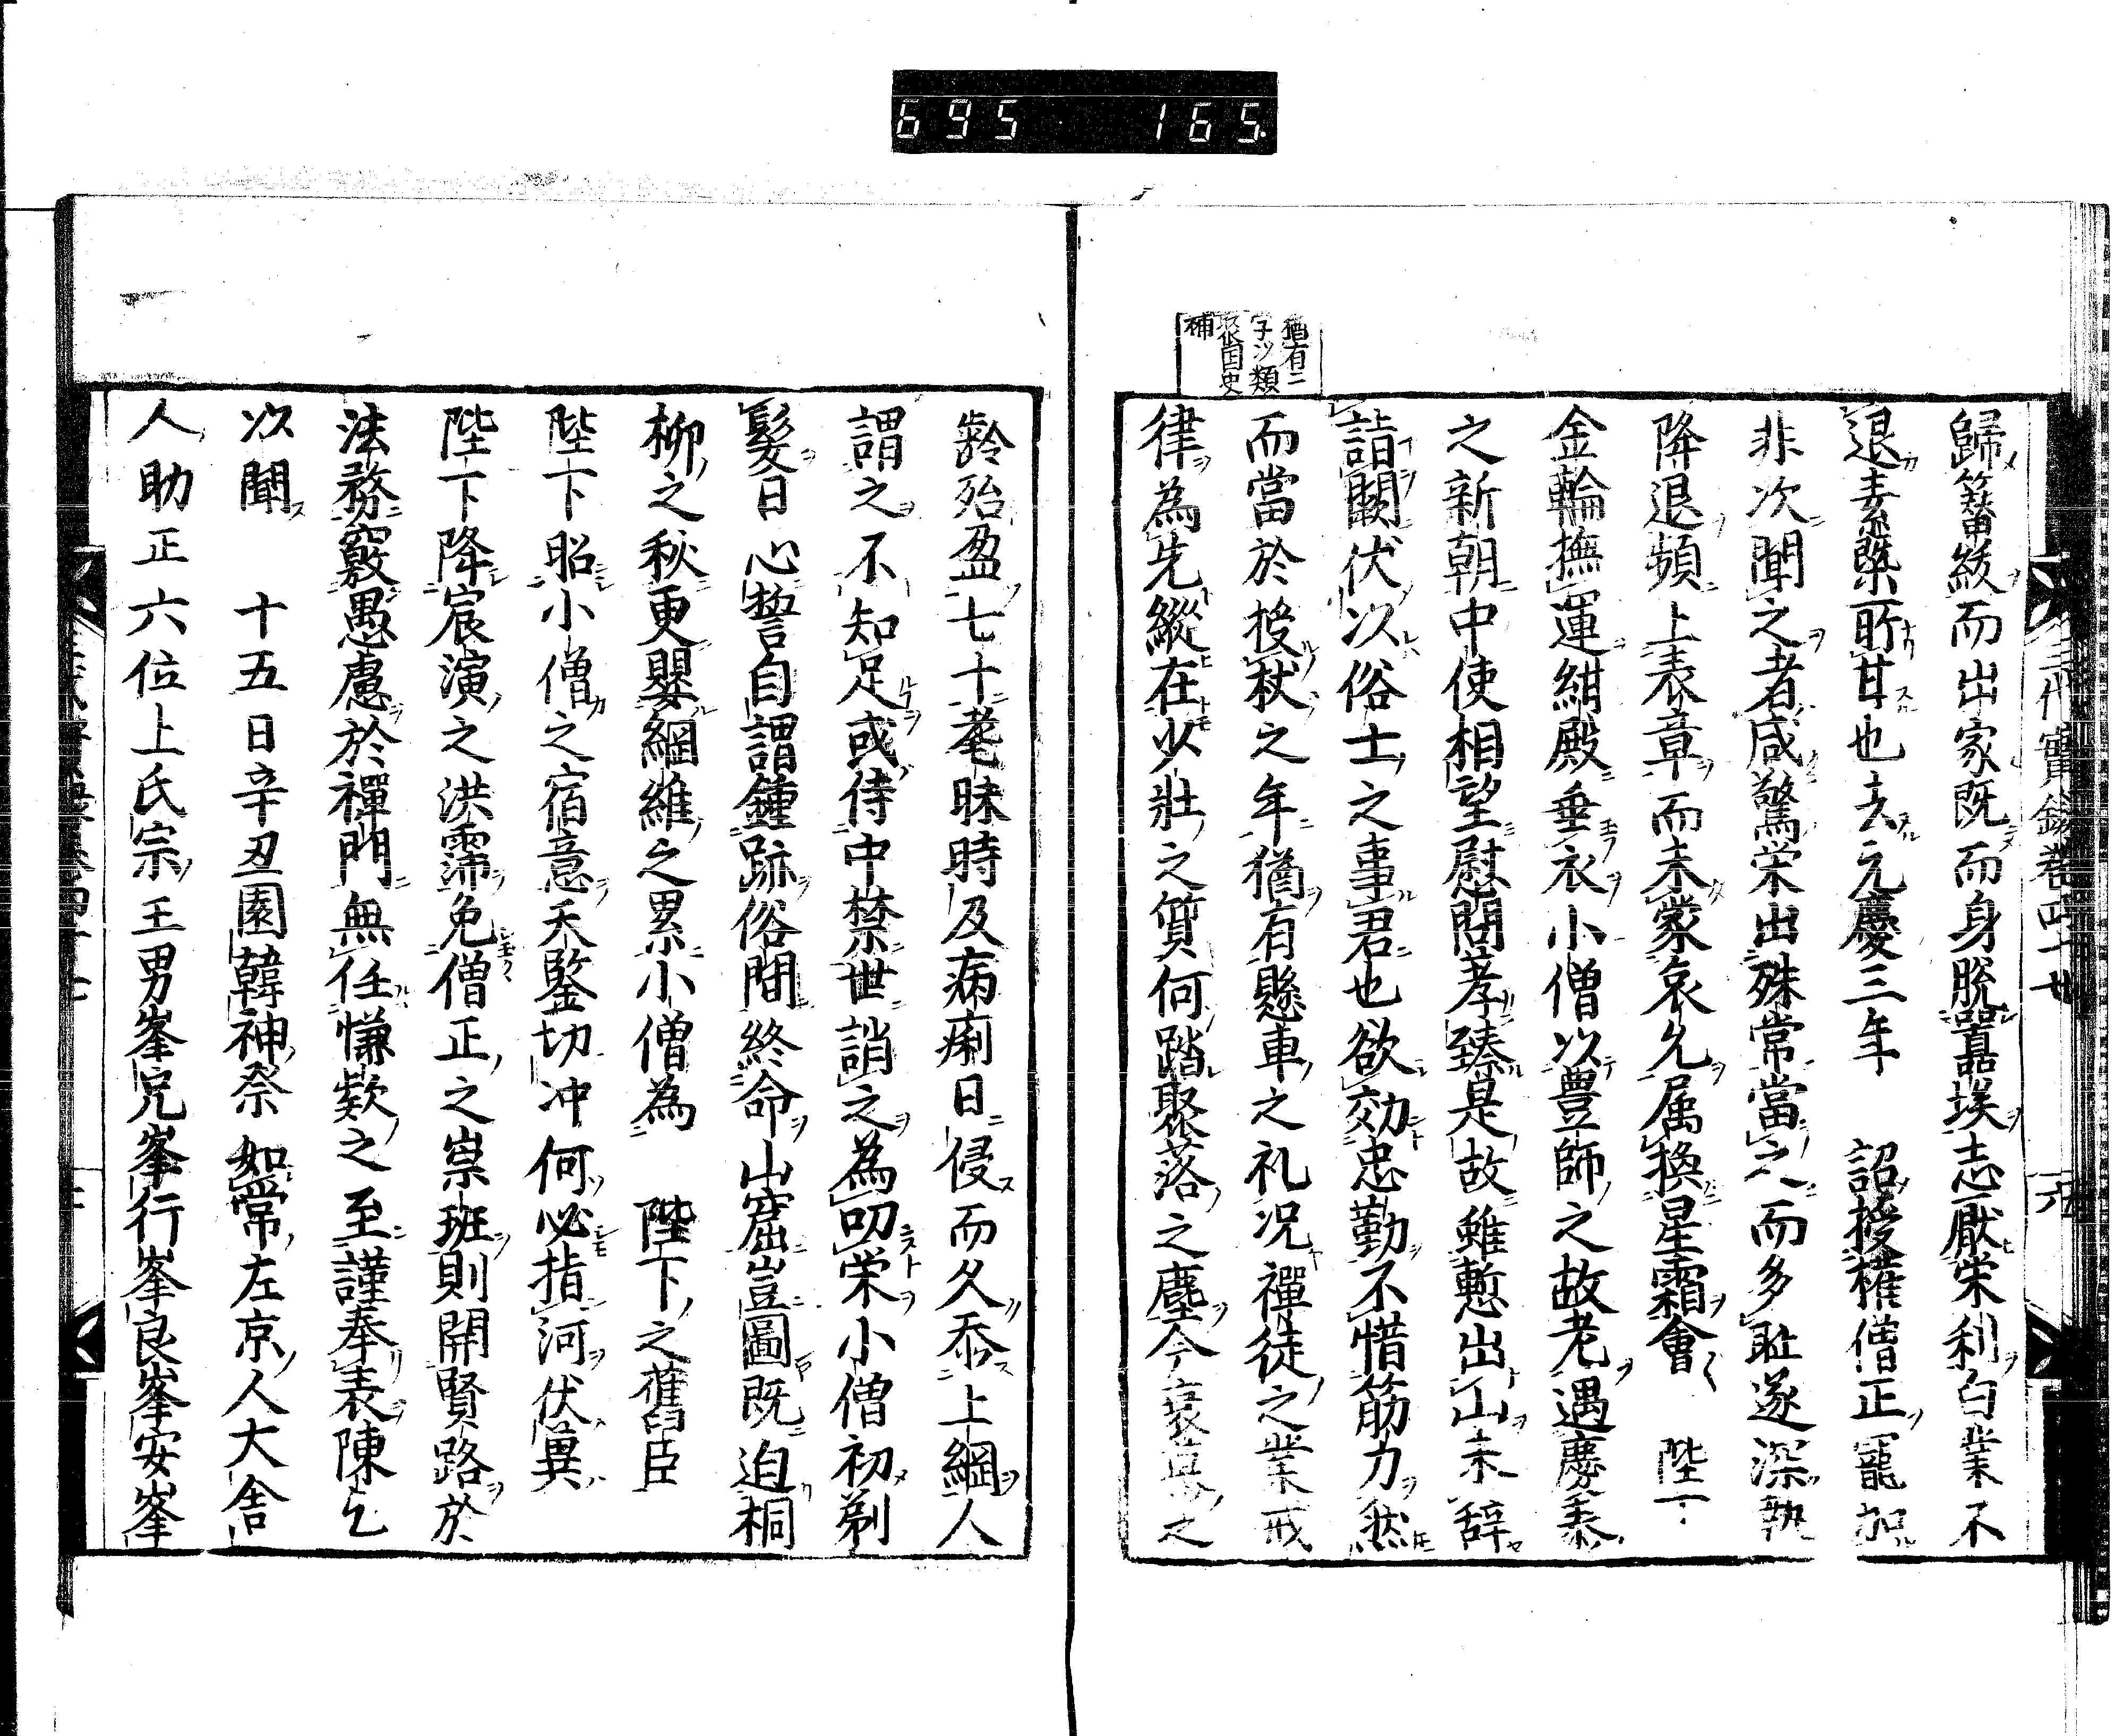 695 165
猶有二
字以類
聚国史
補
三代實録卷四十七
歸簪紱而出家既而身脫囂埃志厭栄利白業不
退素槩所甘也去元慶三年 詔授権僧正寵加
非次聞之者咸驚栄出殊常當之而多耻遂深執
降退頻上表章而未蒙哀允属換星霜會 陛下
金輪撫運紺殿垂衣小僧以豊師之故老遇慶泰
之新朝中使相望慰問荐臻是故雖慙出山未辞
詣闕伏以俗士之事君也欲効忠勤不惜筋力然
而當於授杖之年猶有懸車之礼况禪徒之業戒
律為先縱在少壮之質何踏聚落之塵今衰暮之
齡殆盈七十耄昧時及病痢日侵而久忝上綱人
謂之不知足或侍中禁世誚之為叨栄小僧初剃
髮日心誓自謂鍾跡俗間終命山窟豈圖既迫桐
柳之秋更嬰綱維之累小僧為 陛下之舊臣
陛下昭小僧之宿意天鑒切冲何必指河伏冀
陛下降宸演之洪霈免僧正之崇班則開賢路於
法務竅愚慮於禪門無任慊欵之至謹奉表陳乞
次聞 十五日辛丑園韓神祭如常左京人大舍
人助正六位上氏宗王男峯兄峯行峯良峯安峯